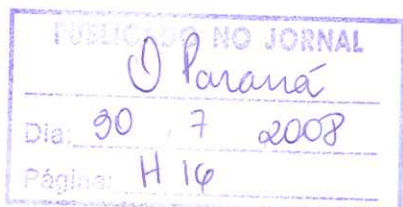 PUBLICADO NO JORNAL
O Paraná
Dia: 30 7 2008
Página: H 16